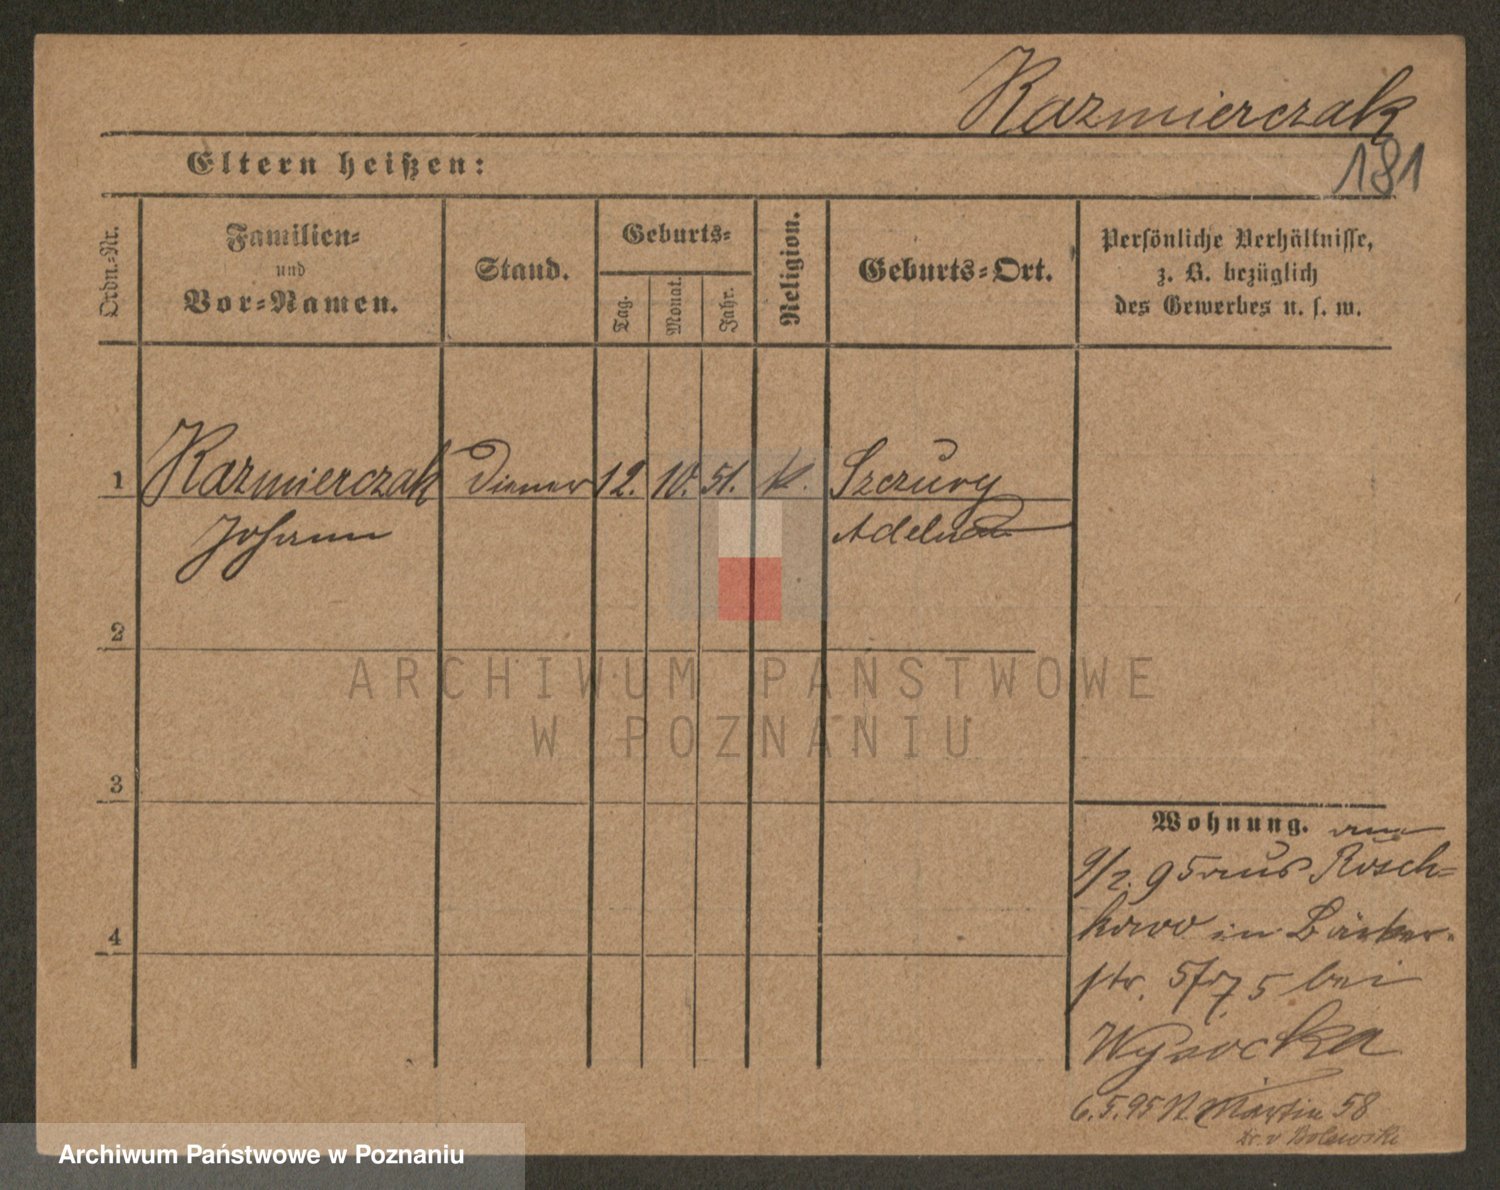 Kazmierczak
181
Eltern heißen:
Ordn.-Nr.
Familien-
und
Vor-Namen.
Stand.
Geburts-
Tag.
Monat.
Jahr.
Religion.
Geburts-Ort.
Persönliche Verhältnisse,
z. B. bezüglich
des Gewerbes u. s. w.
1 Kazmierczak Diener 12. 10. 51. K. Szczury
Johann Adelnau
2
3
4
ARCHIWUM PAŃSTWOWE
W POZNANIU
Wohnung. am
9/2. 95 aus Rosch-
kowo in Bäcker-
str. 5 bei
Wysocka
6.5.95 St. Martin 58
Archiwum Państwowe w Poznaniu